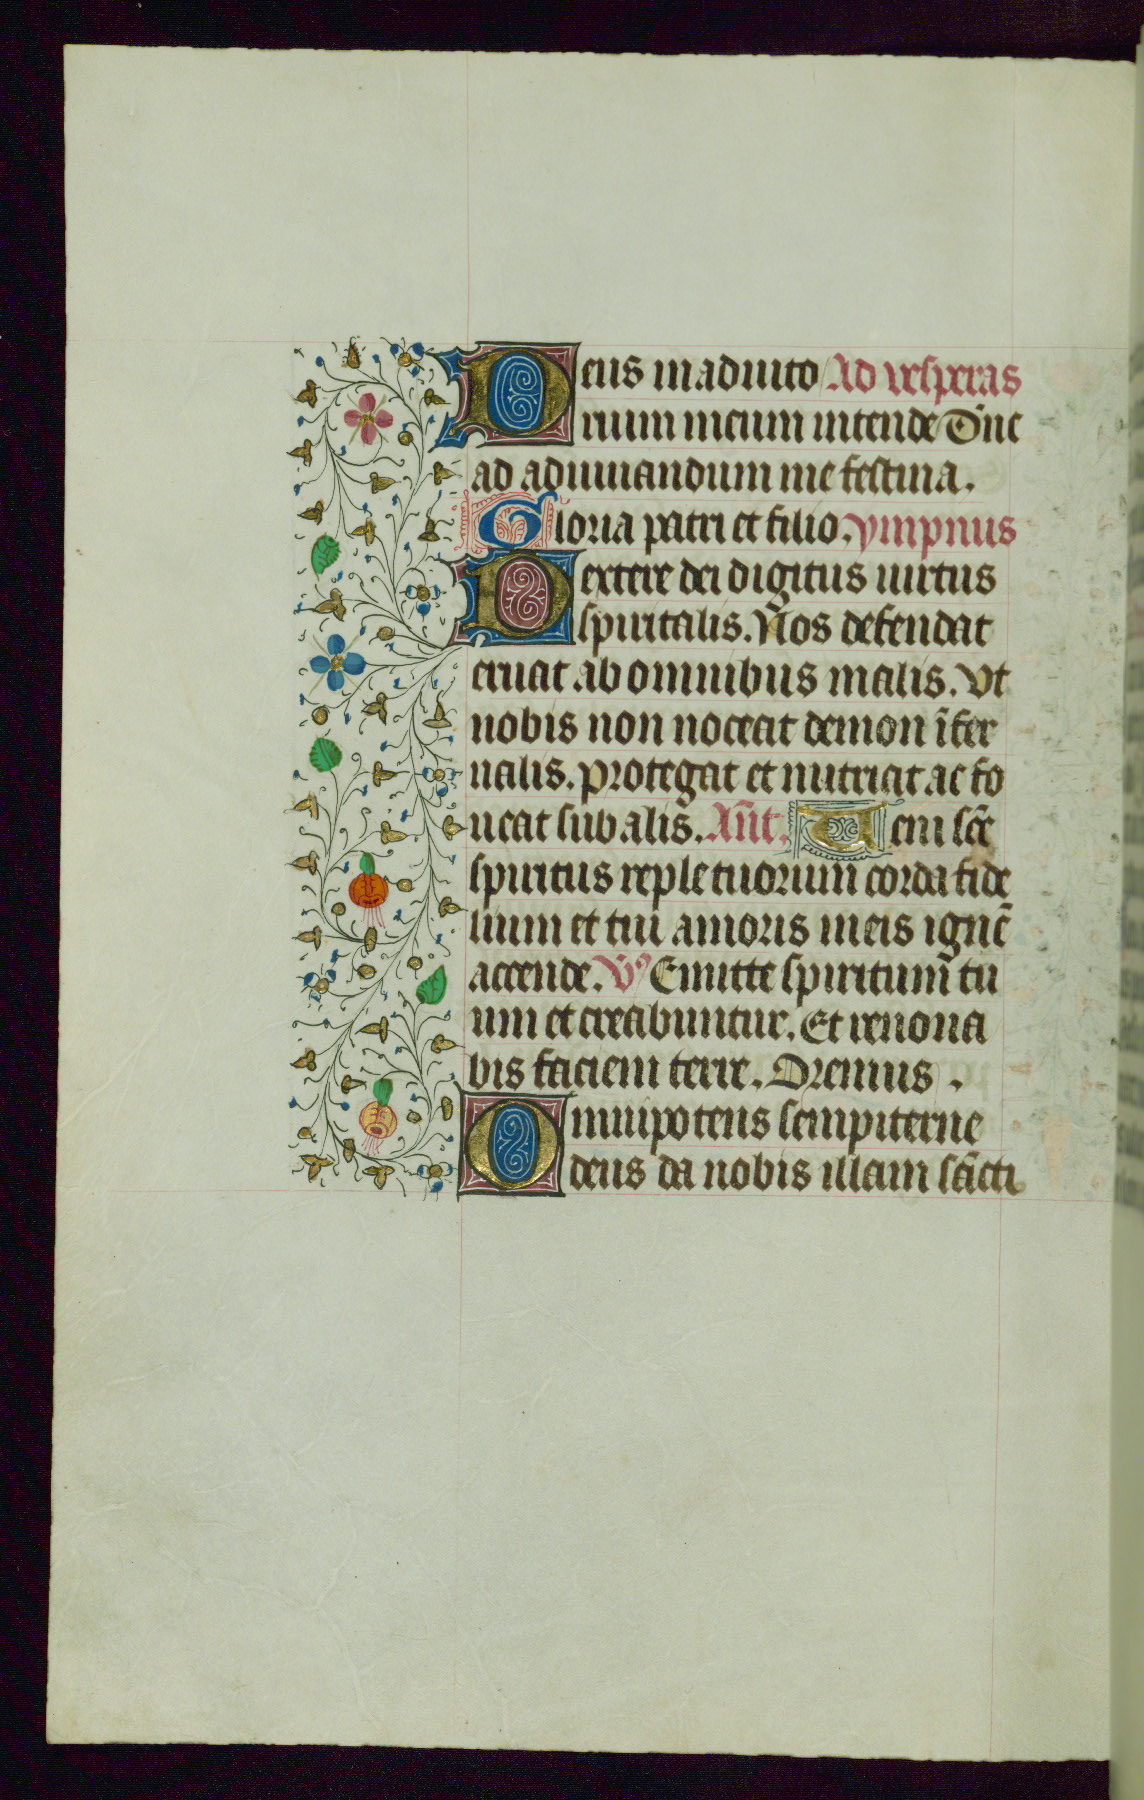 Deus in adiuto Ad vesperas
rium meum intende Dn̄e
ad adiuuandum me festina.
Gloria patri et filio. ympnus
Dextere dei digitus uirtus
spiritalis. Nos defendat
eruat ab omnibus malis. Vt
nobis non noceat demon īfer
nalis. protegat et nutriat ac fo
ueat sub alis. An̄t. Veni sc̄e
spiritus reple tuorum corda fide
lium et tui amoris in eis ignē
accende. V̓ Emitte spiritum tu
um et creabuntur. Et renoua
bis faciem terre. Oremus .
Omnipotens sempiterne
deus da nobis illam sc̄āti